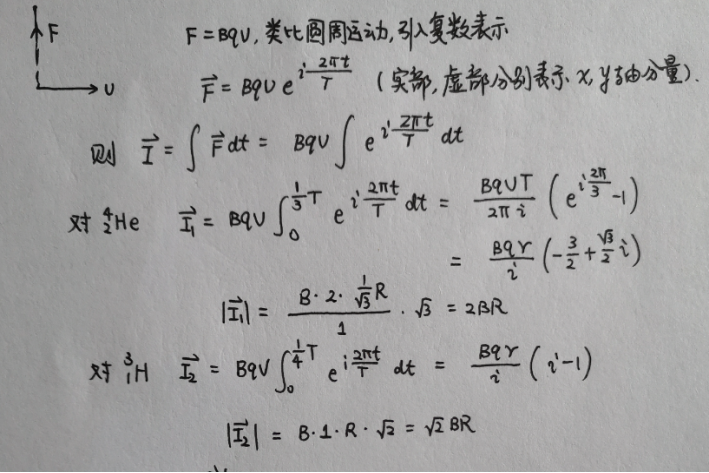 F = Bqv, 类比圆周运动, 引入复数表示
F
v
\vec{F} = Bqv e^{i\frac{2πt}{T}} (实部, 虚部分别表示 x, y 轴分量).
则 \vec{I} = ∫\vec{F}dt = Bqv ∫ e^{i\frac{2πt}{T}} dt
对 ^4_2He \vec{I_1} = Bqv ∫_0^{\frac{1}{3}T} e^{i\frac{2πt}{T}} dt = \frac{BqvT}{2πi} (e^{i\frac{2π}{3}} - 1)
= \frac{Bqr}{i} (-\frac{3}{2} + \frac{√3}{2} i)
|\vec{I_1}| = \frac{B·2·\frac{1}{√3}R}{1} · √3 = 2BR
对 ^3_1H \vec{I_2} = Bqv ∫_0^{\frac{1}{4}T} e^{i\frac{2πt}{T}} dt = \frac{Bqr}{i} (i - 1)
|\vec{I_2}| = B·1·R·√2 = √2 BR